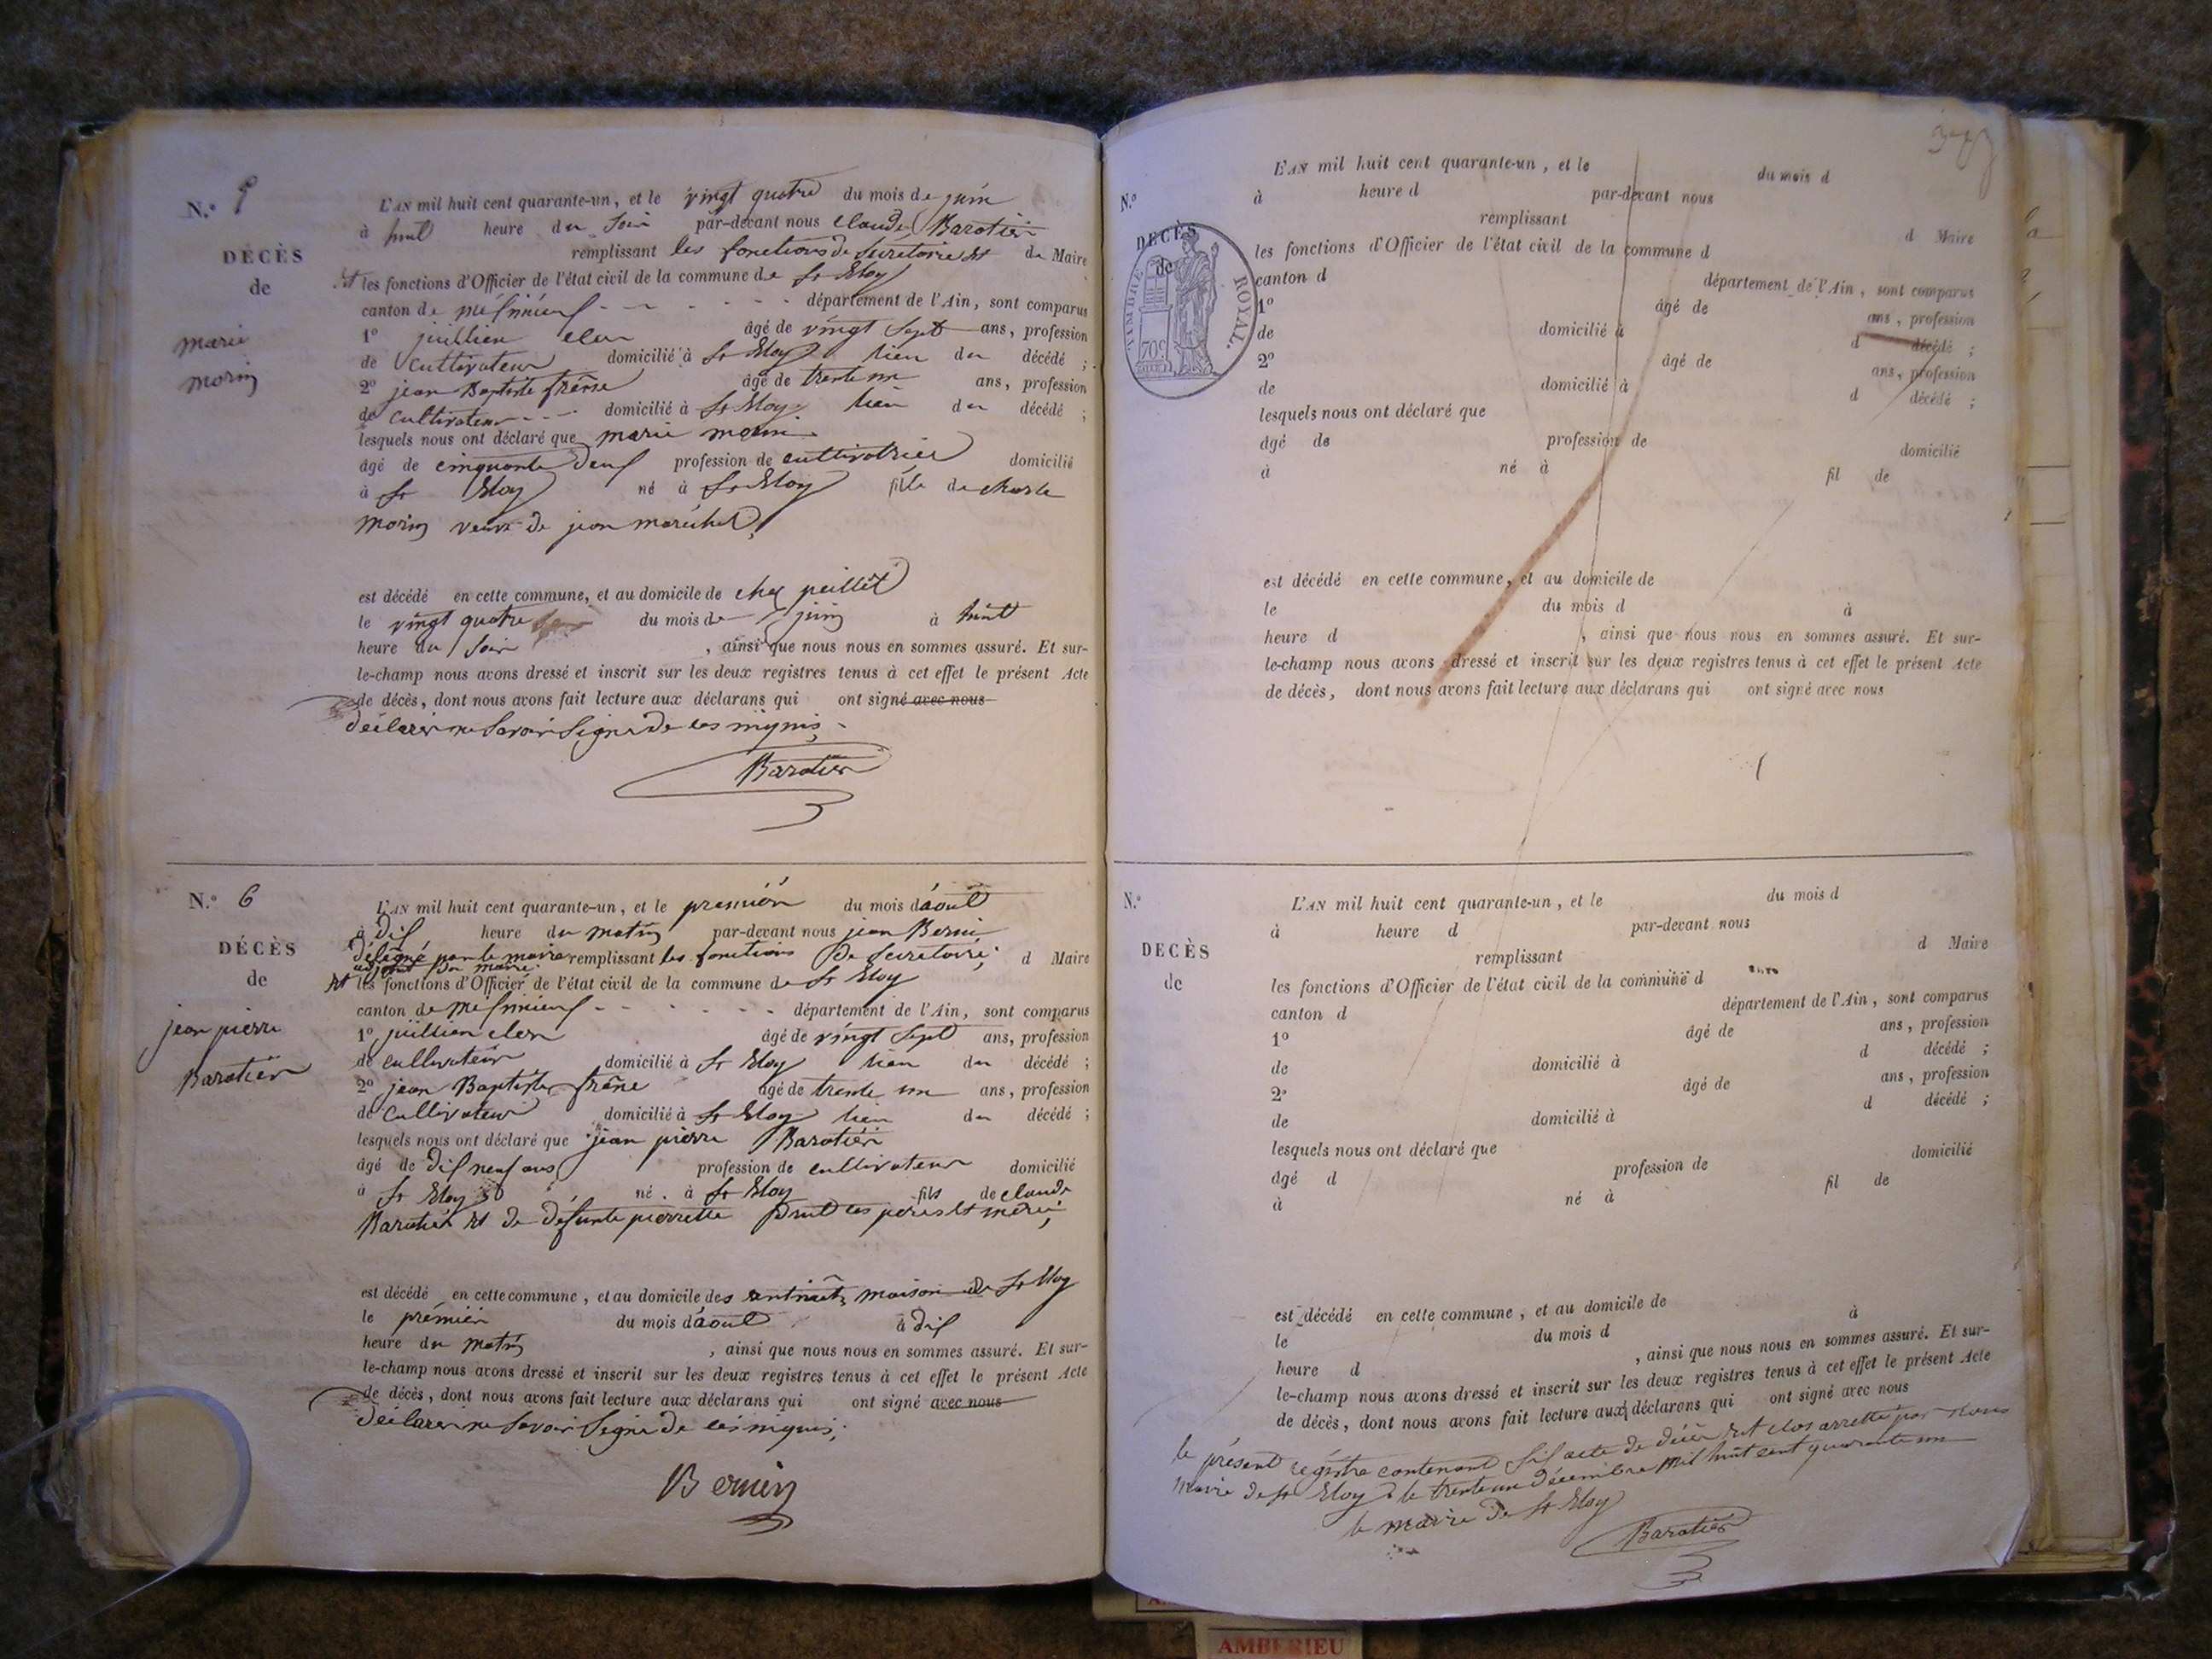 N.° 5
DÉCÈS
de
marie
morin
L'AN mil huit cent quarante-un, et le vingt quatre du mois de juin
à huit heure du Soir par-devant nous claude Barotier
remplissant les fonctions de Secretaire et de Maire
et les fonctions d'Officier de l'état civil de la commune de St Eloy
canton de département de l'Ain, sont comparus
1° juillien cler âgé de vingt Sept ans, profession
de Cultivateur domicilié à St Eloy lien du décédé ;
2° jean Baptiste frêne âgé de trente un ans, profession
de cultivateur domicilié à St Eloy lien du décédé ;
lesquels nous ont déclaré que marie morin
âgé de cinquante deux profession de cultivatrice domicilié
à St Eloy né à St Eloy fille de charle
morin veuve de jean maréchal,
est décédé en cette commune, et au domicile de chez peillet
le vingt quatre du mois de juin à huit
heure du Soir , ainsi que nous nous en sommes assuré. Et sur-
le-champ nous avons dressé et inscrit sur les deux registres tenus à cet effet le présent Acte
de décès, dont nous avons fait lecture aux déclarans qui ont signé avec nous
déclarer ne Savoir Signe de
Barotier
N.° 6
DÉCÈS
de
jean pierre
Barotier
L'AN mil huit cent quarante-un, et le premier du mois d'aoùt
à dix heure du matin par-devant nous jean Bernin
désigné par le maire remplissant les fonctions de Secretaire, d Maire
et les fonctions d'Officier de l'état civil de la commune de St Eloy
canton de département de l'Ain, sont comparus
1° juillien cler âgé de vingt Sept ans, profession
de cultivateur domicilié à St Eloy lien du décédé ;
2° jean Baptiste frêne âgé de trente un ans, profession
de Cultivateur domicilié à St Eloy lien du décédé ;
lesquels nous ont déclaré que jean pierre Barotier
âgé de dix neuf ans profession de cultivateur domicilié
à St Eloy né à St Eloy fils de claude
Barotier et de défunte pierrette ses peres et mere,
est décédé en cette commune, et au domicile des maison de St Eloy
le prémier du mois d'aoùt à dix
heure du matin , ainsi que nous nous en sommes assuré. Et sur-
le-champ nous avons dressé et inscrit sur les deux registres tenus à cet effet le présent Acte
de décès, dont nous avons fait lecture aux déclarans qui ont signé avec nous
déclarer ne Savoir Signe de
Bernin
N.°
DÉCÈS
de
TIMBRE ROYAL.
70c
L'AN mil huit cent quarante-un, et le du mois d
à heure d par-devant nous
remplissant d Maire
les fonctions d'Officier de l'état civil de la commune d
canton d département de l'Ain, sont comparus
1° âgé de ans, profession
de domicilié à d décédé ;
2° âgé de ans, profession
de domicilié à d décédé ;
lesquels nous ont déclaré que
âgé de profession de domicilié
à né à fil de
est décédé en cette commune, et au domicile de
le du mois d à
heure d , ainsi que nous nous en sommes assuré. Et sur-
le-champ nous avons dressé et inscrit sur les deux registres tenus à cet effet le présent Acte
de décès, dont nous avons fait lecture aux déclarans qui ont signé avec nous
N.°
DÉCÈS
de
L'AN mil huit cent quarante-un, et le du mois d
à heure d par-devant nous
remplissant d Maire
les fonctions d'Officier de l'état civil de la commune d
canton d département de l'Ain, sont comparus
1° âgé de ans, profession
de domicilié à d décédé ;
2° âgé de ans, profession
de domicilié à d décédé ;
lesquels nous ont déclaré que
âgé d profession de domicilié
à né à fil de
est décédé en cette commune, et au domicile de
le du mois d à
heure d , ainsi que nous nous en sommes assuré. Et sur-
le-champ nous avons dressé et inscrit sur les deux registres tenus à cet effet le présent Acte
de décès, dont nous avons fait lecture aux déclarans qui ont signé avec nous
le présent régistre contenant Six acte de décès est clos arretté par nous
maire de St Eloy le trente un décembre mil huit cent quarante un
le maire de St Eloy
Barotier
AMBERIEU